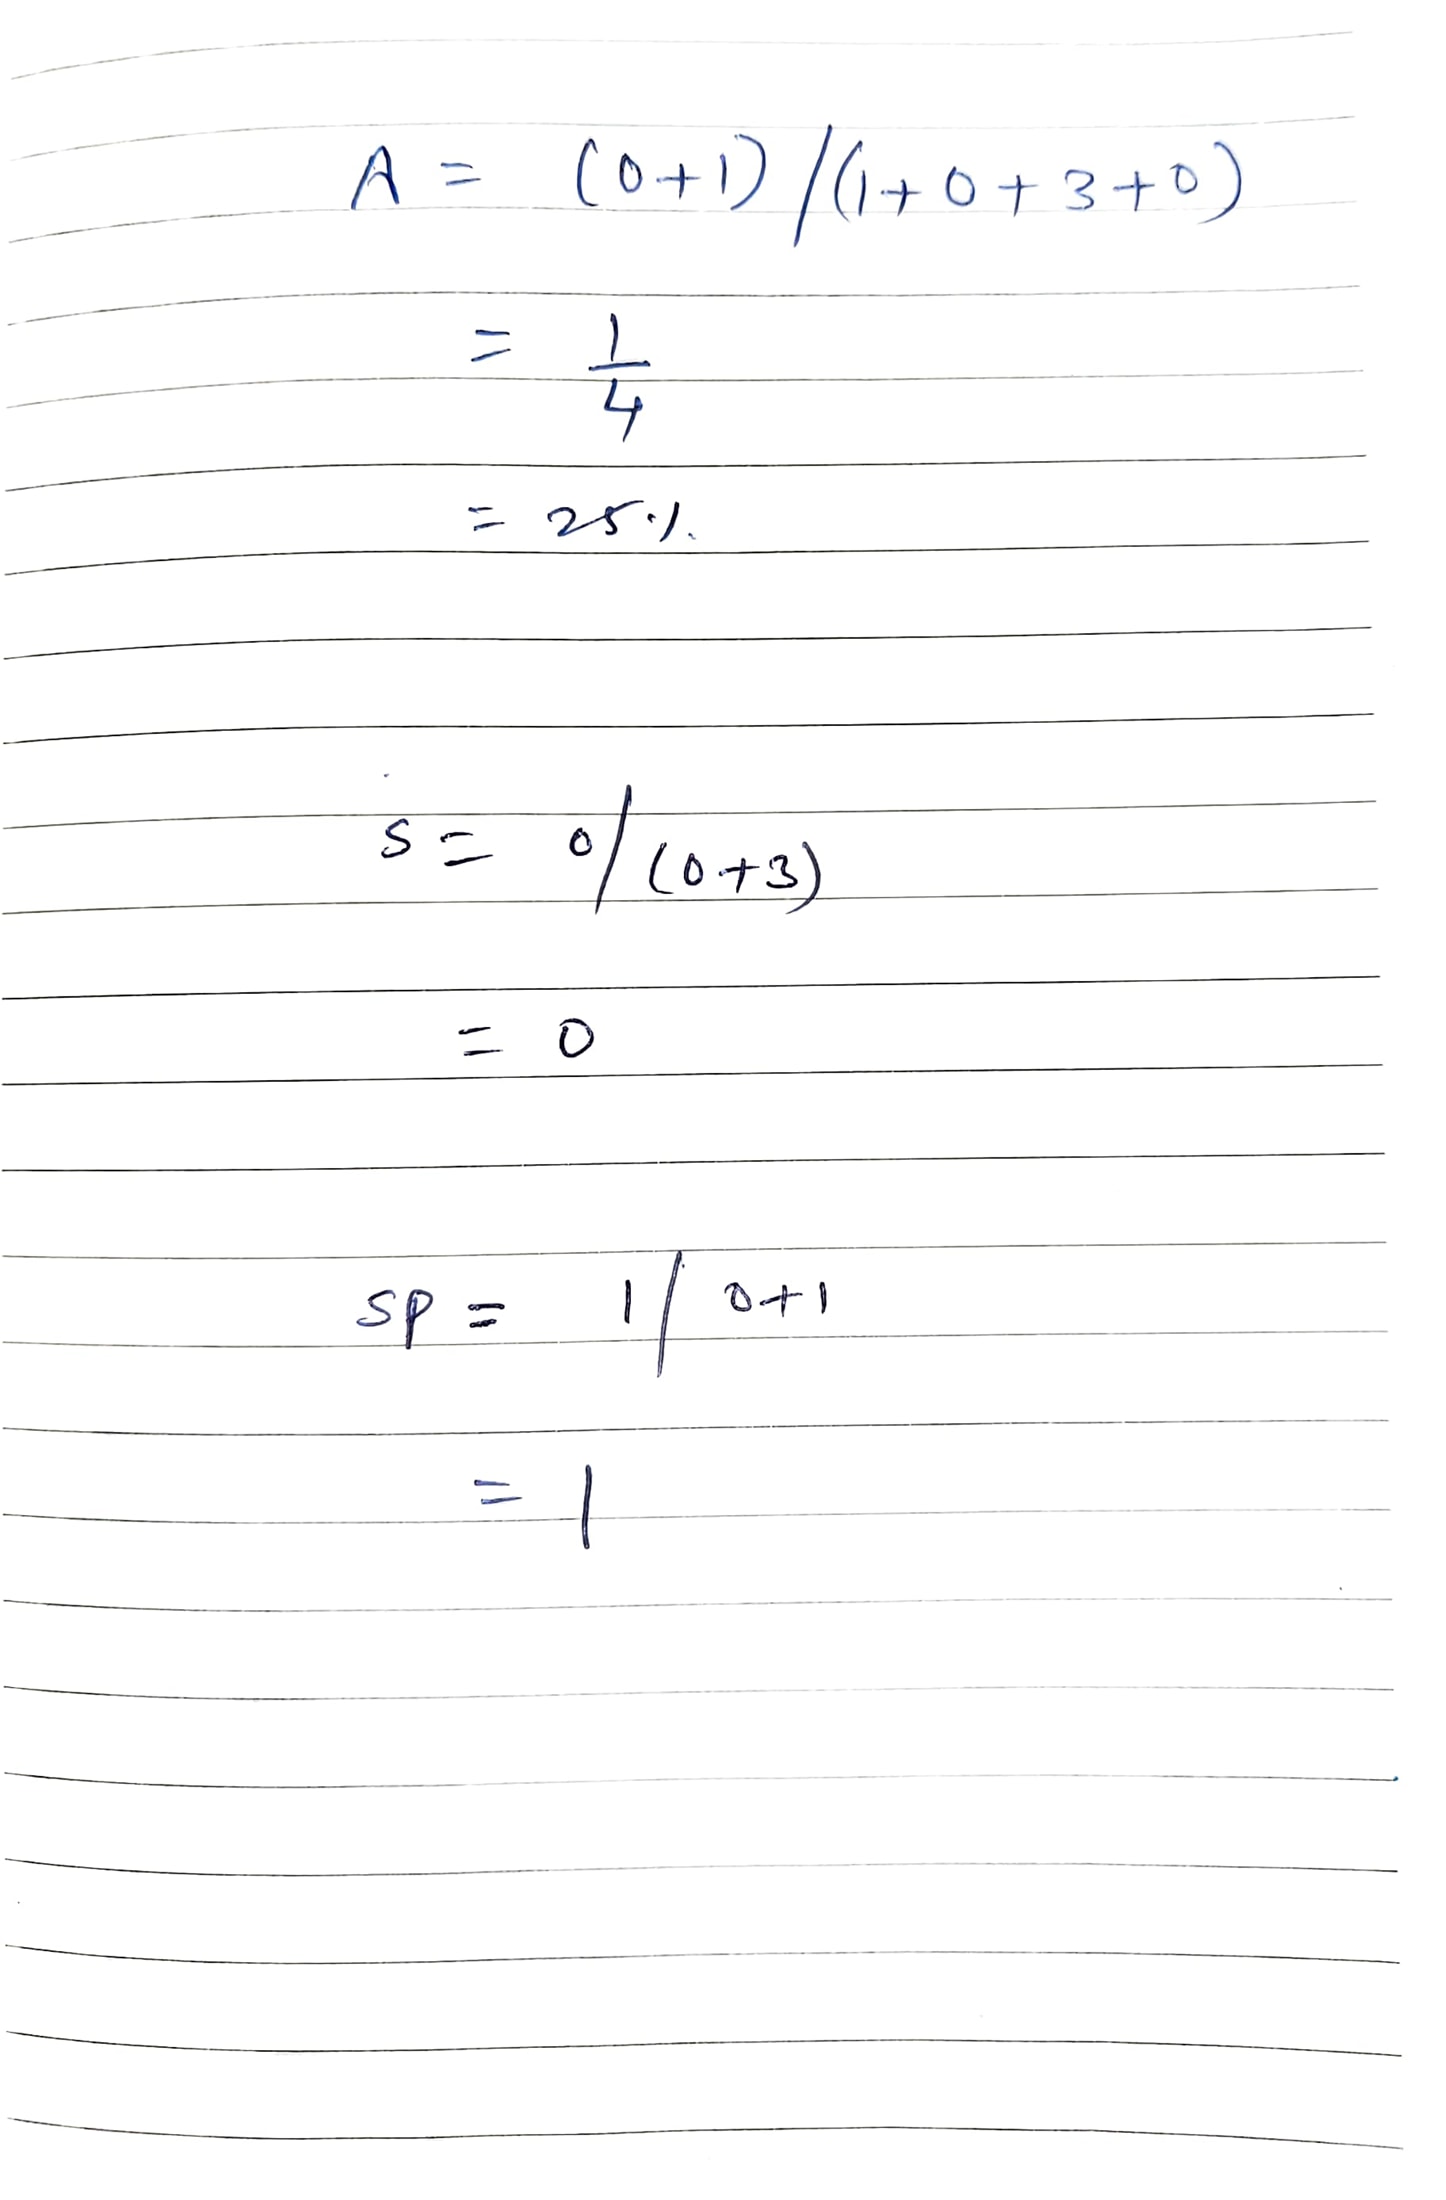 A = (0+1)/(1+0+3+0)
= 1/4
= 25%
S = 0/(0+3)
= 0
SP = 1/0+1
= 1